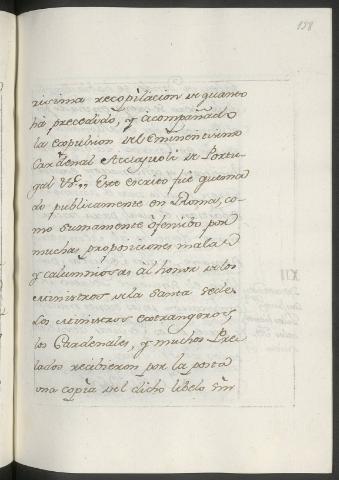 158
risima recopilacion de quanto
ha precedido, y acompañado
la expulsion del Eminentisimo
Cardenal Acciaguoli de Portu-
gal &c.ª,, Este escrito fue quema-
do publicamente en Roma, co-
mo sumamente ofensibo por
muchas proposiciones malas
y calumniosas al honor de los
Ministros de la Santa Sede.
Los Ministros extrangeros
los Cardenales, y muchos Pre-
lados recibieron por la posta
una copia del dicho libelo sin
XII